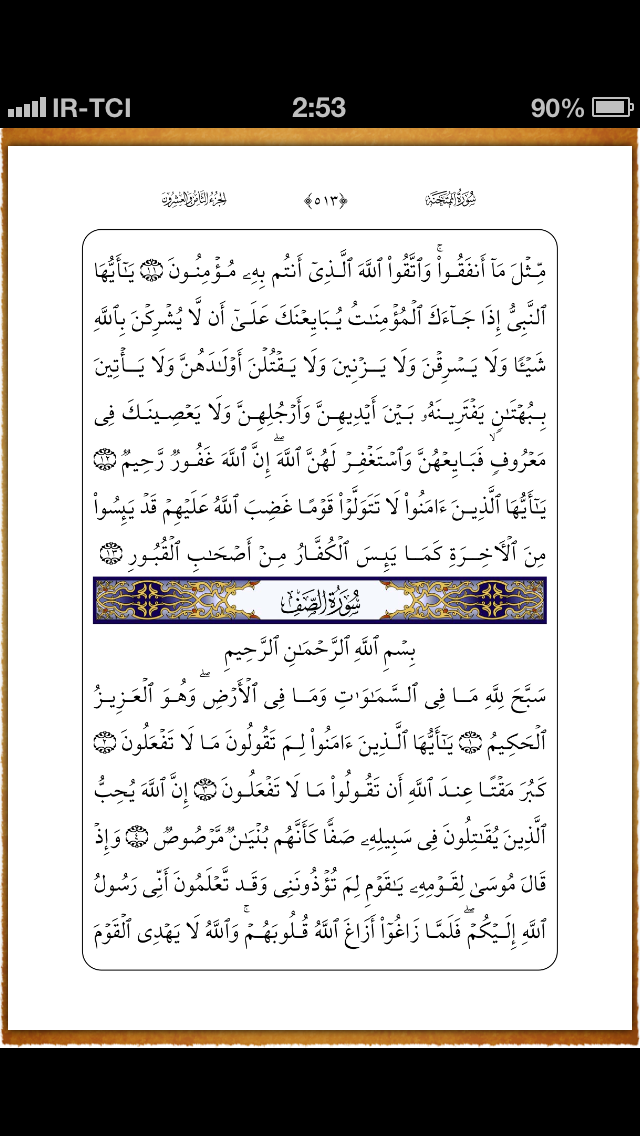 IR-TCI 2:53 90%
سُورَةُ المُمْتَحَنَةِ ﴿٥١٣﴾ الجُزْءُ الثَّامِنُ وَالعِشْرُونَ
مِّثۡلَ مَآ أَنفَقُواْۚ وَٱتَّقُواْ ٱللَّهَ ٱلَّذِيٓ أَنتُم بِهِۦ مُؤۡمِنُونَ ١١ يَـٰٓأَيُّهَا
ٱلنَّبِيُّ إِذَا جَآءَكَ ٱلۡمُؤۡمِنَـٰتُ يُبَايِعۡنَكَ عَلَىٰٓ أَن لَّا يُشۡرِكۡنَ بِٱللَّهِ
شَيۡـٔٗا وَلَا يَسۡرِقۡنَ وَلَا يَزۡنِينَ وَلَا يَقۡتُلۡنَ أَوۡلَـٰدَهُنَّ وَلَا يَأۡتِينَ
بِبُهۡتَـٰنٖ يَفۡتَرِينَهُۥ بَيۡنَ أَيۡدِيهِنَّ وَأَرۡجُلِهِنَّ وَلَا يَعۡصِينَكَ فِي
مَعۡرُوفٖ ۙ فَبَايِعۡهُنَّ وَٱسۡتَغۡفِرۡ لَهُنَّ ٱللَّهَۖ إِنَّ ٱللَّهَ غَفُورٞ رَّحِيمٞ ١٢
يَـٰٓأَيُّهَا ٱلَّذِينَ ءَامَنُواْ لَا تَتَوَلَّوۡاْ قَوۡمًا غَضِبَ ٱللَّهُ عَلَيۡهِمۡ قَدۡ يَئِسُواْ
مِنَ ٱلۡأٓخِرَةِ كَمَا يَئِسَ ٱلۡكُفَّارُ مِنۡ أَصۡحَـٰبِ ٱلۡقُبُورِ ١٣
سُورَةُ الصَّفِّ
بِسۡمِ ٱللَّهِ ٱلرَّحۡمَـٰنِ ٱلرَّحِيمِ
سَبَّحَ لِلَّهِ مَا فِي ٱلسَّمَـٰوَٰتِ وَمَا فِي ٱلۡأَرۡضِۖ وَهُوَ ٱلۡعَزِيزُ
ٱلۡحَكِيمُ ١ يَـٰٓأَيُّهَا ٱلَّذِينَ ءَامَنُواْ لِمَ تَقُولُونَ مَا لَا تَفۡعَلُونَ ٢
كَبُرَ مَقۡتًا عِندَ ٱللَّهِ أَن تَقُولُواْ مَا لَا تَفۡعَلُونَ ٣ إِنَّ ٱللَّهَ يُحِبُّ
ٱلَّذِينَ يُقَـٰتِلُونَ فِي سَبِيلِهِۦ صَفّٗا كَأَنَّهُم بُنۡيَـٰنٞ مَّرۡصُوصٞ ٤ وَإِذۡ
قَالَ مُوسَىٰ لِقَوۡمِهِۦ يَـٰقَوۡمِ لِمَ تُؤۡذُونَنِي وَقَد تَّعۡلَمُونَ أَنِّي رَسُولُ
ٱللَّهِ إِلَيۡكُمۡۖ فَلَمَّا زَاغُوٓاْ أَزَاغَ ٱللَّهُ قُلُوبَهُمۡۚ وَٱللَّهُ لَا يَهۡدِي ٱلۡقَوۡمَ